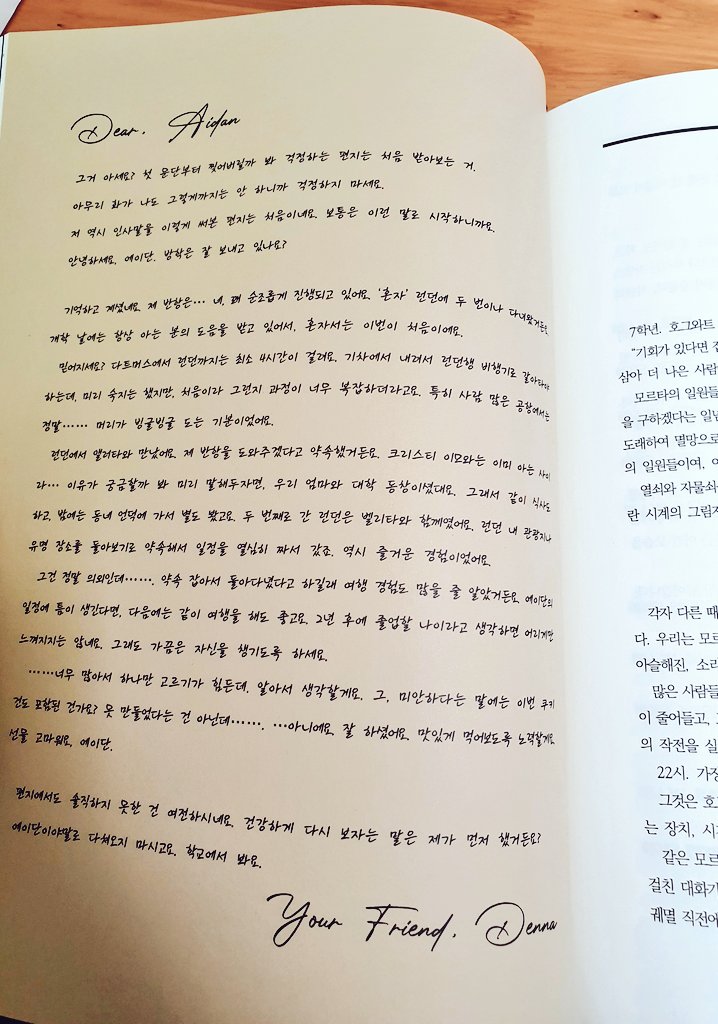 Dear. Aidan
그거 아세요? 첫 문단부터 찢어버릴까 봐 걱정하는 편지는 처음 받아보는 거.
아무리 화가 나도 그렇게까지는 안 하니까 걱정하지 마세요.
저 역시 인사말을 이렇게 써본 편지는 처음이네요. 보통은 이런 말로 시작하니까요.
안녕하세요, 에이단. 방학은 잘 보내고 있나요?
기억하고 계셨네요. 제 반항은… 네, 꽤 순조롭게 진행되고 있어요. '혼자' 런던에 두 번이나 다녀왔거든요.
개학 날에는 항상 아는 분의 도움을 받고 있어서, 혼자서는 이번이 처음이에요.
믿어지세요? 다트머스에서 런던까지는 최소 4시간이 걸려요. 기차에서 내려서 런던행 비행기로 갈아타야
하는데, 미리 숙지는 했지만, 처음이라 그런지 과정이 너무 복잡하더라고요. 특히 사람 많은 공항에서는
정말…… 머리가 빙글빙글 도는 기분이었어요.
런던에서 앨러타와 만났어요. 제 반항을 도와주겠다고 약속했거든요. 크리스티 이모와는 이미 아는 사이
라… 이유가 궁금할까 봐 미리 말해두자면, 우리 엄마와 대학 동창이셨대요. 그래서 같이 식사도
하고, 밤에는 동네 언덕에 가서 별도 봤고요. 두 번째로 간 런던은 벨리타와 함께였어요. 런던 내 관광지나
유명 장소를 돌아보기로 약속해서 일정을 열심히 짜서 갔죠. 역시 즐거운 경험이었어요.
그건 정말 의외인데……. 약속 잡아서 돌아다녔다고 하길래 여행 경험도 많을 줄 알았거든요. 에이단의
일정에 틈이 생긴다면, 다음에는 같이 여행을 해도 좋고요. 2년 후에 졸업할 나이라고 생각하면 어리게만
느껴지지는 않네요. 그래도 가끔은 자신을 챙기도록 하세요.
……너무 많아서 하나만 고르기가 힘든데. 알아서 생각할게요. 그, 미안하다는 말에는 이번 쿠키
건도 포함된 건가요? 못 만들었다는 건 아닌데……. …아니에요. 잘 하셨어요. 맛있게 먹어보도록 노력할게요.
선물 고마워요, 에이단.
편지에서도 솔직하지 못한 건 여전하시네요. 건강하게 다시 보자는 말은 제가 먼저 했거든요?
에이단이야말로 다쳐오지 마시고요. 학교에서 봐요.
Your Friend. Denna
7학년. 호그와트
"기회가 있다면
삼아 더 나은 사람
모르타의 일원들
을 구하겠다는 일념
도래하여 멸망으로
의 일원들이여,
열쇠와 자물쇠
란 시계의 그림자
각자 다른 때
다. 우리는 모르
아슬해진, 소리
많은 사람들
이 줄어들고,
의 작전을 실
22시. 가장
그것은 호그
는 장치,
같은 모르
걸친 대화가
궤멸 직전에